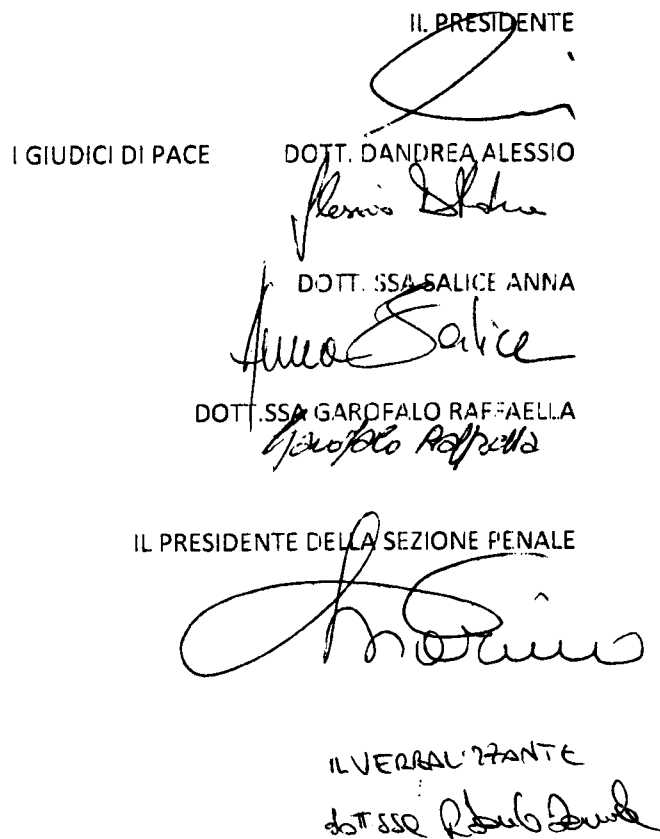 IL PRESIDENTE
I GIUDICI DI PACE DOTT. DANDREA ALESSIO
Alessio
DOTT. SSA SALICE ANNA
Anna Salice
DOTT.SSA GAROFALO RAFFAELLA
Garofalo Raffaella
IL PRESIDENTE DELLA SEZIONE PENALE
IL VERBALIZZANTE
dott.ssa